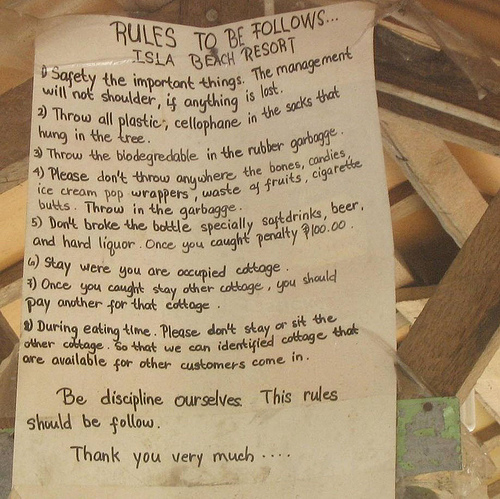 RULES TO BE FOLLOWS...
ISLA BEACH RESORT
1) Safety the important things. The management
will not shoulder, if anything is lost.
2) Throw all plastic, cellophane in the sacks that
hung in the tree.
3) Throw the biodegredable in the rubber garbagge.
4) Please don't throw anywhere the bones, candies,
ice cream pop wrappers, waste of fruits, cigarette
butts. Throw in the garbagge.
5) Don't broke the bottle specially softdrinks, beer,
and hard liquor. Once you caught penalty ₱100.00.
6) Stay were you are occupied cottage.
7) Once you caught stay other cottage, you should
pay another for that cottage.
8) During eating time. Please don't stay or sit the
other cottage. So that we can identified cottage that
are available for other customers come in.
Be discipline ourselves. This rules
should be follow.
Thank you very much ....